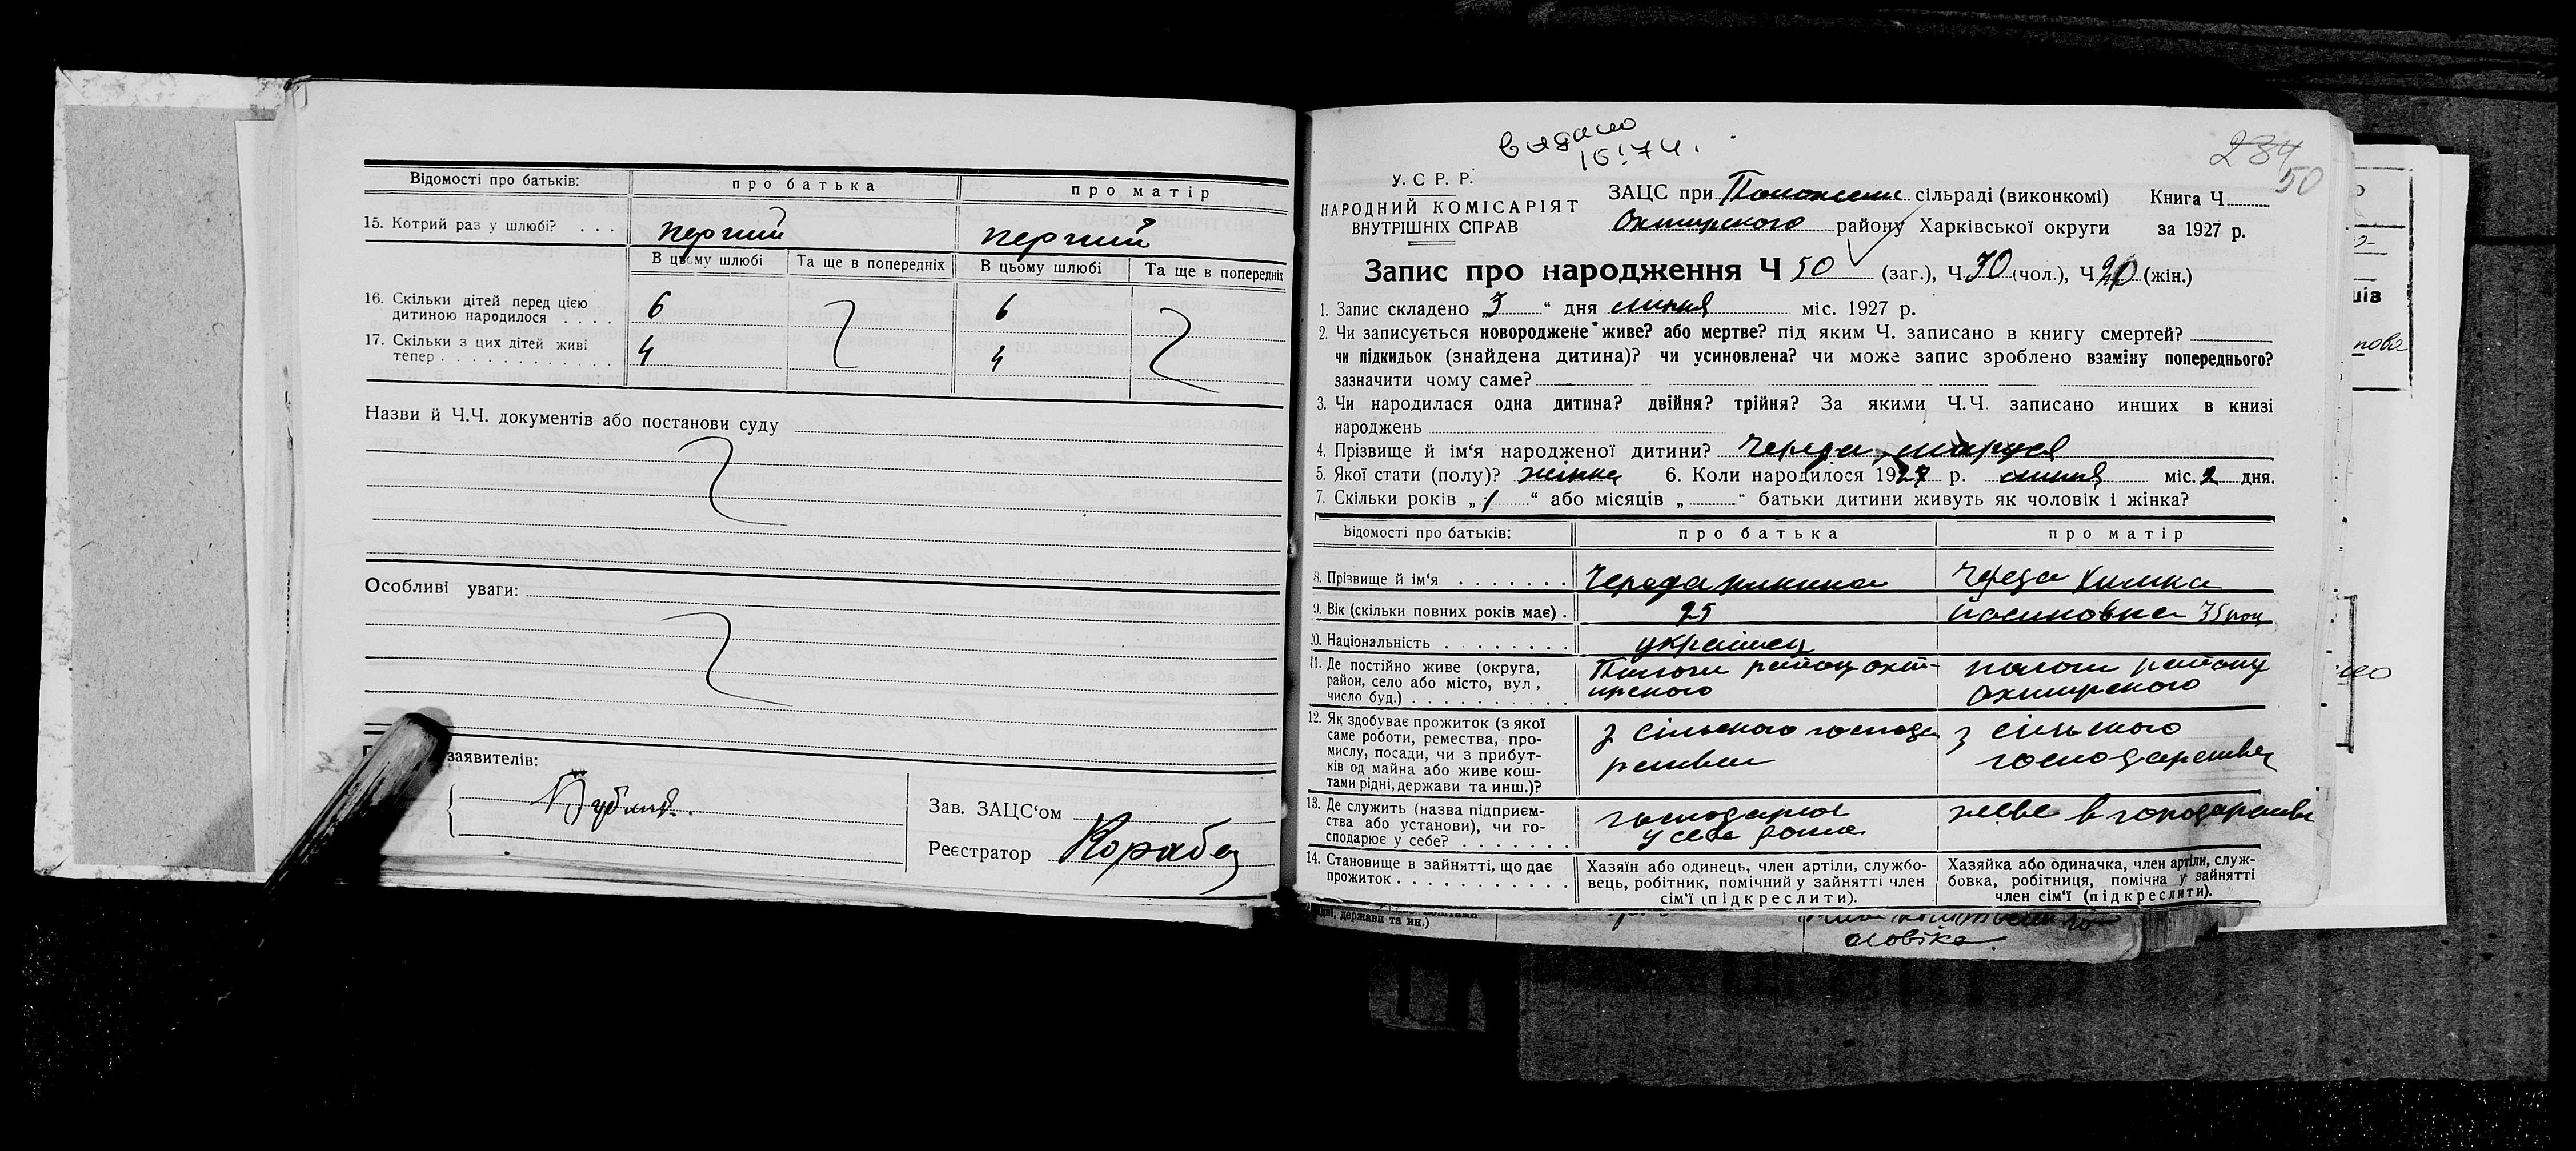 Відомості про батьків: про батька про матір
15. Котрий раз у шлюбі? . . . перший перший
В цьому шлюбі Та ще в попередніх В цьому шлюбі Та ще в попередніх
16. Скільки дітей перед цією
дитиною народилося . . . . 6 6
17. Скільки з цих дітей живі
тепер . . . . . . . . . . . 4 4
Назви й Ч.Ч. документів або постанови суду
Особливі уваги:
заявителів:
Зав. ЗАЦС‘ом
Реєстратор
видано
284
50
У. С Р. Р.
НАРОДНИЙ КОМІСАРІЯТ
ВНУТРІШНІХ СПРАВ
ЗАЦС при сільраді (виконкомі) Книга Ч
Охтирского району Харківської округи за 1927 р.
Запис про народження Ч 50 (заг.), Ч. 30 (чол.), Ч. 20 (жін.)
1. Запис складено „3“ дня липня міс. 1927 р.
2. Чи записується новороджене живе? або мертве? під яким Ч. записано в книгу смертей?
чи підкидьок (знайдена дитина)? чи усиновлена? чи може запис зроблено взаміну попереднього?
зазначити чому саме?
3. Чи народилася одна дитина? двійня? трійня? За якими Ч.Ч. записано инших в книзі
народжень
4. Прізвище й ім‘я народженої дитини? Череда Маруся
5. Якої стати (полу)? жінка 6. Коли народилося 1927 р. липня міс. 2 дня.
7. Скільки років „ “ або місяців „ “ батьки дитини живуть як чоловік і жінка?
Відомості про батьків: про батька про матір
8. Прізвище й ім‘я . . . . . . . Череда Микита Череда Химка
9. Вік (скільки повних років має) . 35 рок
10. Національність . . . . . . . . українец
11. Де постійно живе (округа,
район, село або місто, вул,
число буд.) . . . . . . . . . . .
Пологи району Охти-
рского
пологи району
Охтирского
12. Як здобуває прожиток (з якої
саме роботи, ремества, про-
мислу, посади, чи з прибут-
ків од майна або живе кош-
тами рідні, держави та инш.)?
з сільского господа
рства
з сільского
господарства
13. Де служить (назва підприєм-
ства або установи), чи го-
сподарює у себе? . . . . . . .
господарює
у себе дома
живе в господарстві
14. Становище в зайнятті, що дає
прожиток . . . . . . . . . . . .
Хазяїн або одинець, член артіли, службо-
вець, робітник, помічний у зайнятті член
сім‘ї (підкреслити).
Хазяйка або одиначка, член артіли, служ-
бовка, робітниця, помічна у зайнятті
член сім‘ї (підкреслити).
держави та ин.)